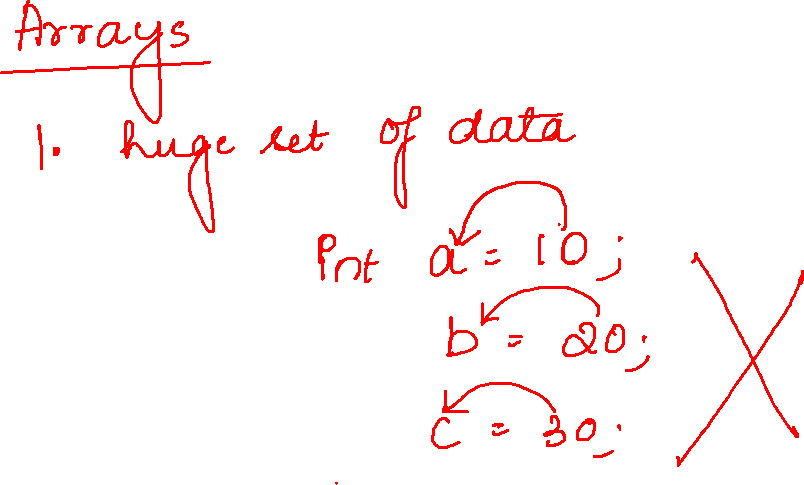 Arrays
1. huge set of data
int a = 10;
b = 20;
c = 30;